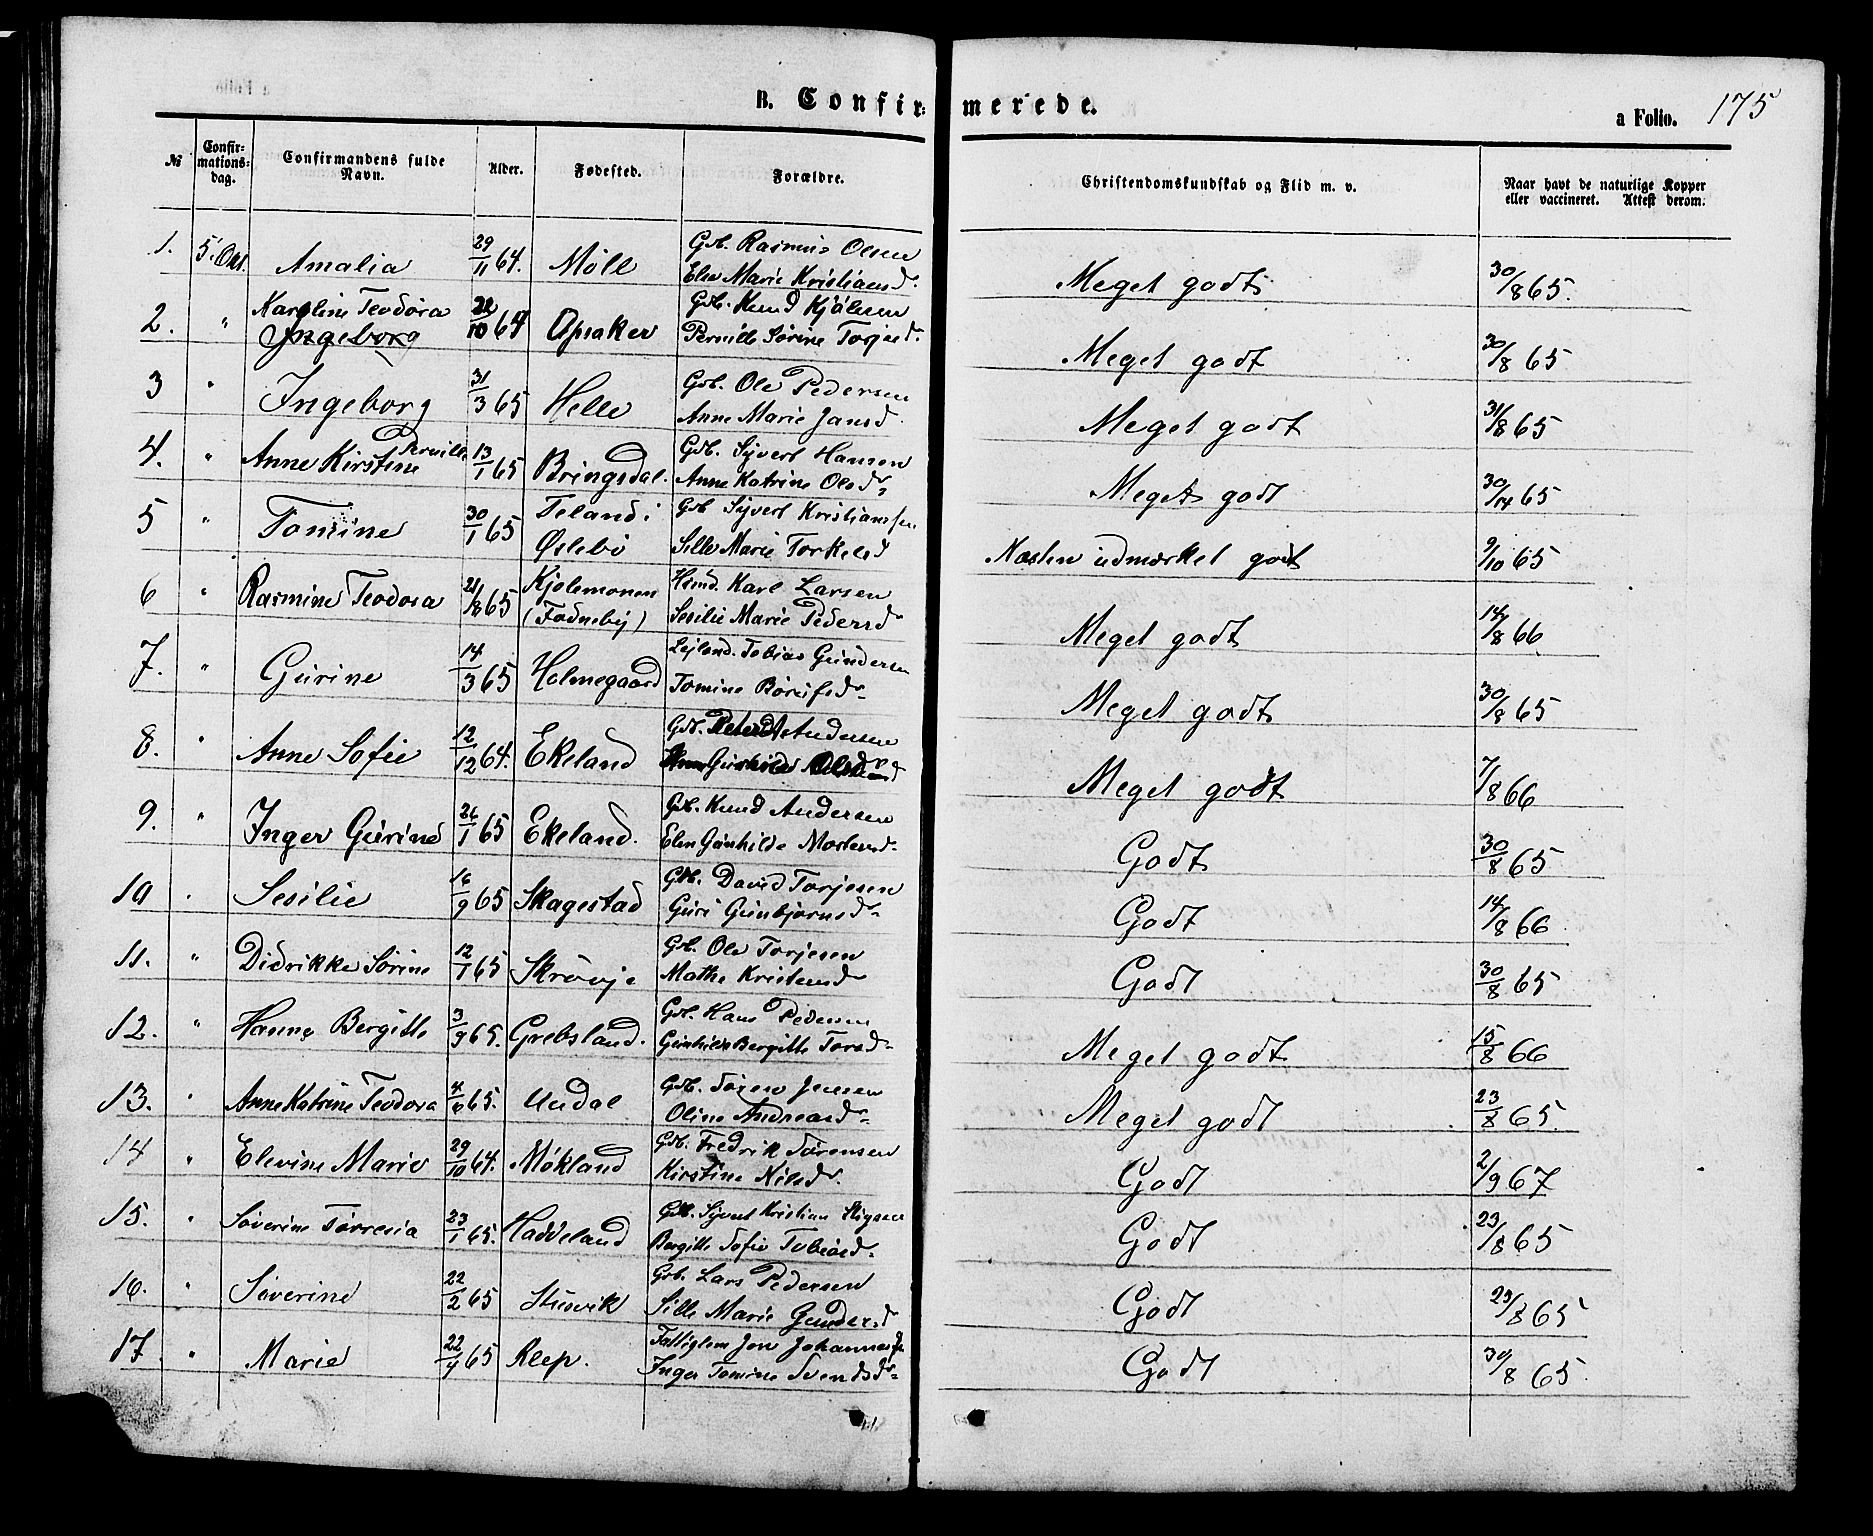 B. Confirmerede.
a Folio. 175
№ Confirmations-dag. Confirmandens fulde Navn. Alder. Fødested. Forældre. Christendomskundskab og Flid m. v. Naar havt de naturlige Kopper eller vaccineret. Attest derom.
1. 5. Okt. Amalia 29/11 64. Møll Gdb. Rasmus Olsen
Elen Marie Kristiansd. Meget godt 30/8 65.
2. " Karoline Teodora 22/10 64 Opsaker Gdb. Knud Kjølsen
Ingeborg Pernille Sørine Torjusd. Meget godt 30/8 65
3 " Ingeborg 31/3 65 Helle Gdb. Ole Pedersen
Anne Marie Jansd. Meget godt 31/8 65
4. " Anne Kirstine Pernille 13/1 65 Bringsdal. Gdb. Syvert Hansen
Anne Katrine Olsd. Meget godt 30/ 65
5 " Tomine 30/1 65 Øslebø Gdb Syvert Kristianssen
Sille Marie Torkelsd Næsten udmærket godt 9/10 65
6 " Rasmine Teodora 65 Kjelemonen Hsmd. Karl Larsen
(Fodneby) Sesilie Marie Pedersd Meget godt 14/8 66
7. " Gurine 14/3 65 Holmegaard Lejland. Tobias Gundersen
Tomine Meget godt 30/8 65
8. " Anne Sofie 12/12 64. Ekeland Gdb. Andersen
Gunhild Meget godt 7/8 66
9. " Inger Gurine 26/1 65 Ekeland. Gdb. Knud Andersen
Elen Gunhilde Godt 30/8 65
10 . Sesilie 16/9 65 Skagestad Gdb. David Torjesen
Guri Gunbjørnsd. Godt 14/8 66
11. " Didrikke Sørine 12/1 65 Skrøvje Gdb. Ole Torjesen
Mathe Kristensd Godt 30/8 65
12. " Hanne Bergitte 3/9 65. Grebsland. Gdb. Hans Pedersen
Gunhilde Bergitte Torsd. Meget godt 15/8 66
13. " Anne Katrine Teodora 4/6 65. Undal Gdb. Søren Jensen
Oline Andreasd. Meget godt 23/8 65.
14 " Elevine Marie 29/10 64. Møkland Gdb. Fredrik Sørensen
Kirstine Nilsd. Godt 2/9 67
15. " Severine Torresia 23/1 65. Haddeland Gdb. Syvert Kristian
Bergitte Sofie Tobiasd. Godt 23/8 65
16. " Severine 22/2 65 Stusvik Gdb. Lars Pedersen
Sille Marie Gundersd Godt 23/8 65
17. " Marie 22/4 65 Reep. Fattiglem Jon Johannessen
Inger Tomine Svendsd. Godt 30/8 65.